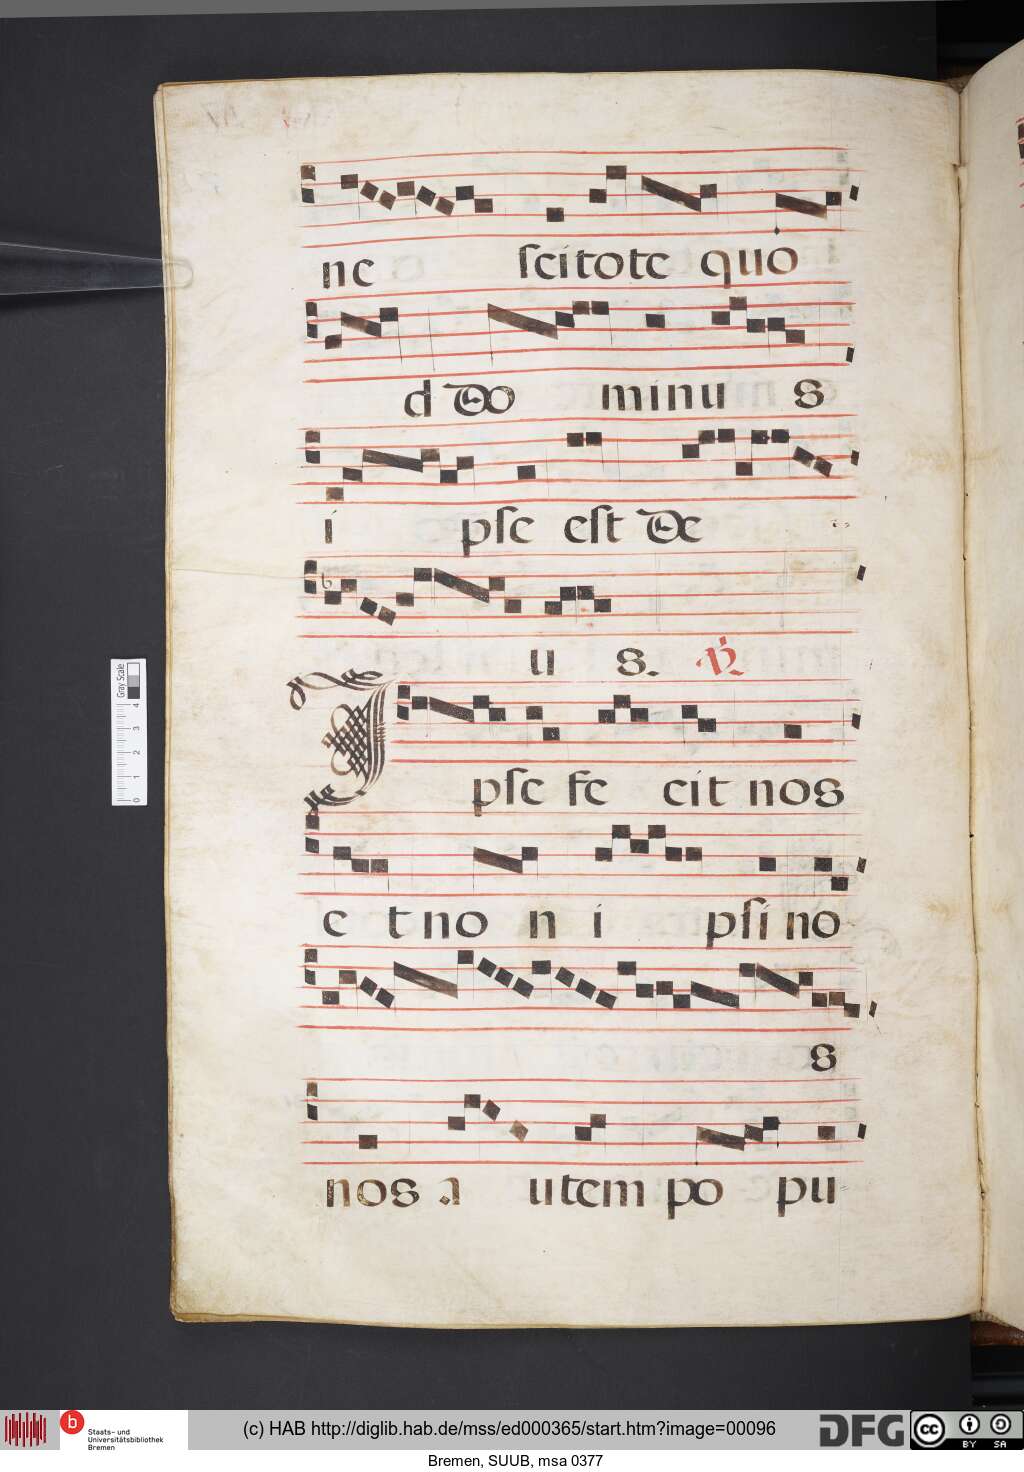 ne scitote quo
d do minu s
i pse est de
u s. R
I pse fe cit nos
e t no n i psi no
s
nos a utem po pu
Gray Scale
0 1 2 3 4
b Staats- und Universitätsbibliothek Bremen
(c) HAB http://diglib.hab.de/mss/ed000365/start.htm?image=00096
DFG
cc BY SA
Bremen, SUUB, msa 0377